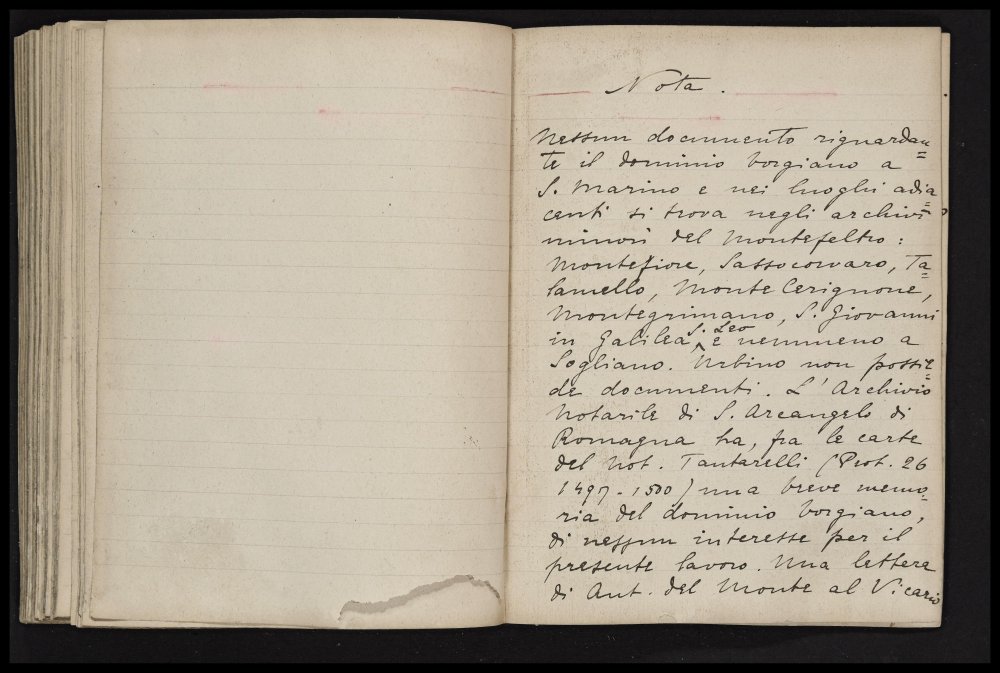 Nota.
Nessun documento riguardan=
te il dominio borgiano a
S. Marino e nei luoghi adia=
centi si trova negli archivi
minori del Montefeltro:
Montefiore, Sassocorvaro, Ta=
lamello, Monte Cerignone,
Montegrimano, S. Giovanni
in Galilea, S. Leo e nemmeno a
Sogliano. Urbino non possie=
de documenti. L'Archivio
Notarile di S. Arcangelo di
Romagna ha, fra le carte
del Not. Tantarelli (Prot. 26
1497-1500) una breve memo=
ria del dominio borgiano,
di nessun interesse per il
presente lavoro. Una lettera
di Ant. del Monte al Vicario